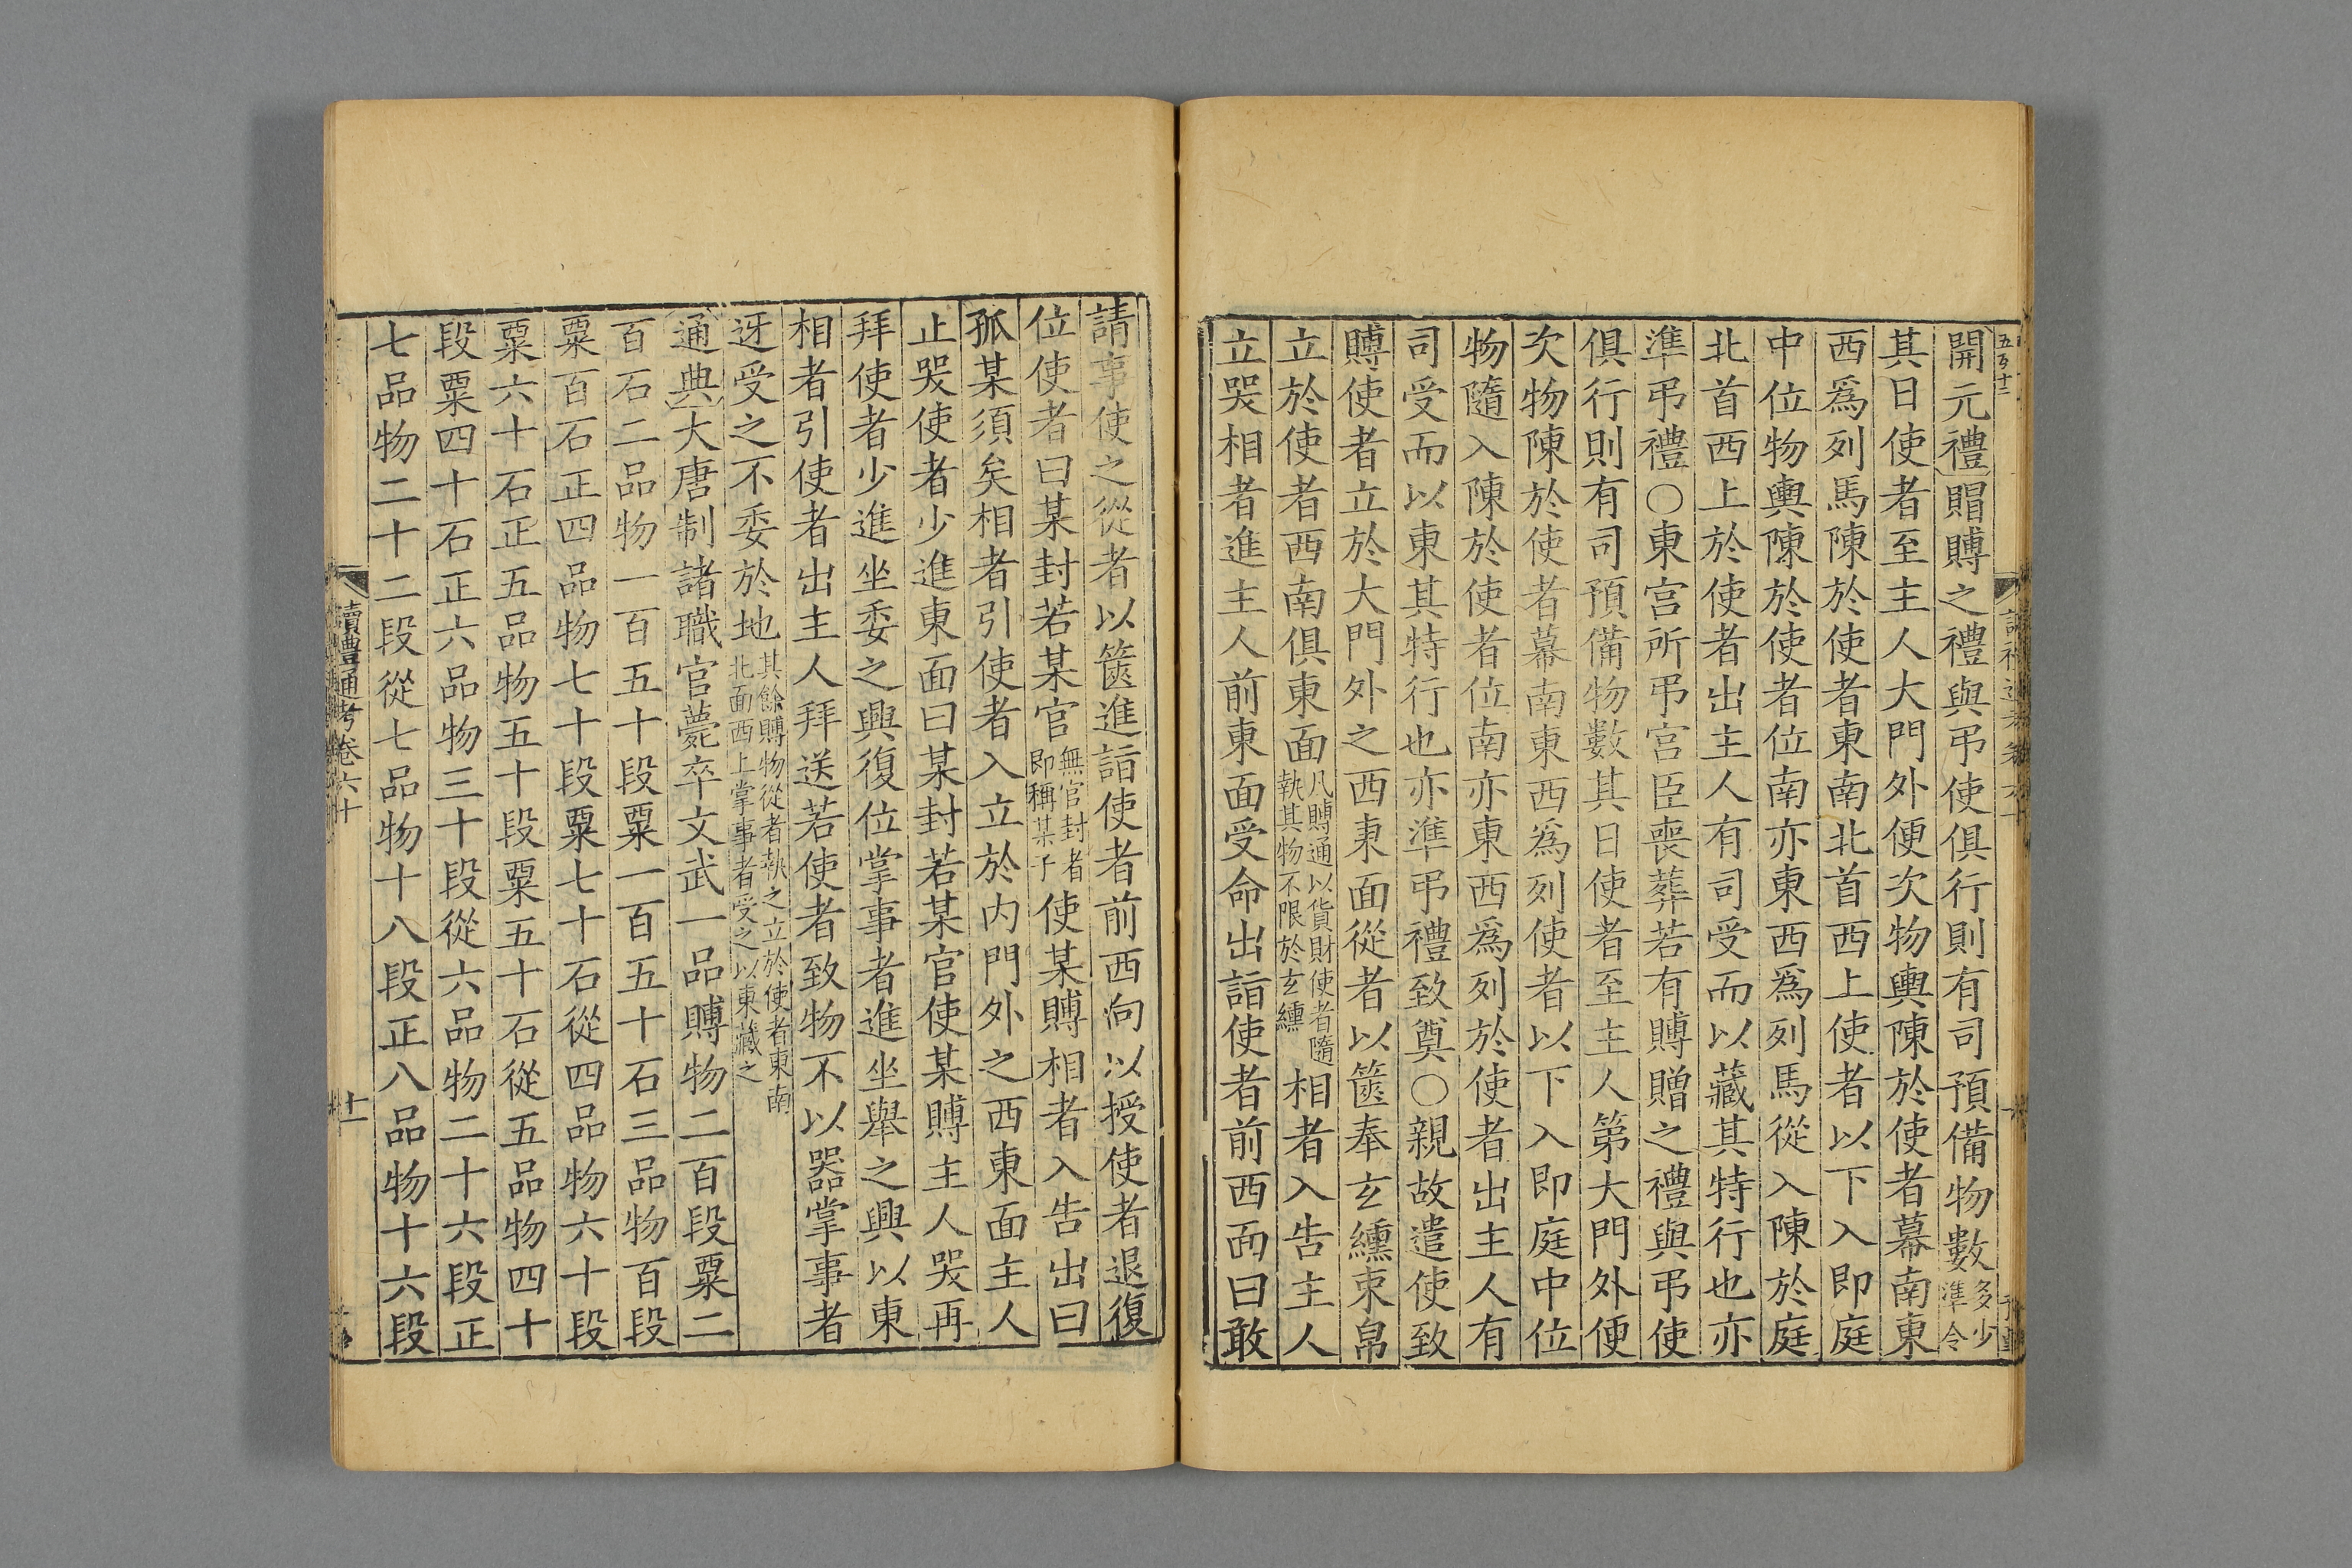 開元禮賵賻之禮與弔使俱行則有司預備物數多少準令
其日使者至主人大門外便次物輿陳於使者幕南東
西爲列馬陳於使者東南北首西上使者以下入即庭
中位物輿陳於使者位南亦東西爲列馬從入陳於庭
北首西上於使者出主人有司受而以藏其特行也亦
準弔禮○東宮所弔宮臣喪葬若有賻贈之禮與弔使
俱行則有司預備物數其日使者至主人第大門外便
次物陳於使者幕南東西爲列使者以下入即庭中位
物隨入陳於使者位南亦東西爲列於使者出主人有
司受而以東其特行也亦準弔禮致奠○親故遣使致
賻使者立於大門外之西東面從者以篋奉玄纁束帛
立於使者西南俱東面凡賻通以貨財使者隨執其物不限於玄纁相者入告主人
立哭相者進主人前東面受命出詣使者前西面曰敢
請事使之從者以篋進詣使者前西向以授使者退復
位使者曰某封若某官無官封者即稱某子使某賻相者入告出曰
孤某須矣相者引使者入立於內門外之西東面主人
止哭使者少進東面曰某封若某官使某賻主人哭再
拜使者少進坐委之興復位掌事者進坐舉之興以東
相者引使者出主人拜送若使者致物不以器掌事者
迓受之不委於地其餘賻物從者執之立於使者東南北面西上掌事者受之以東藏之
通典大唐制諸職官薨卒文武一品賻物二百段粟二
百石二品物一百五十段粟一百五十石三品物百段
粟百石正四品物七十段粟七十石從四品物六十段
粟六十石正五品物五十段粟五十石從五品物四十
段粟四十石正六品物三十段從六品物二十六段正
七品物二十二段從七品物十八段正八品物十六段
讀禮通考卷六十
十一